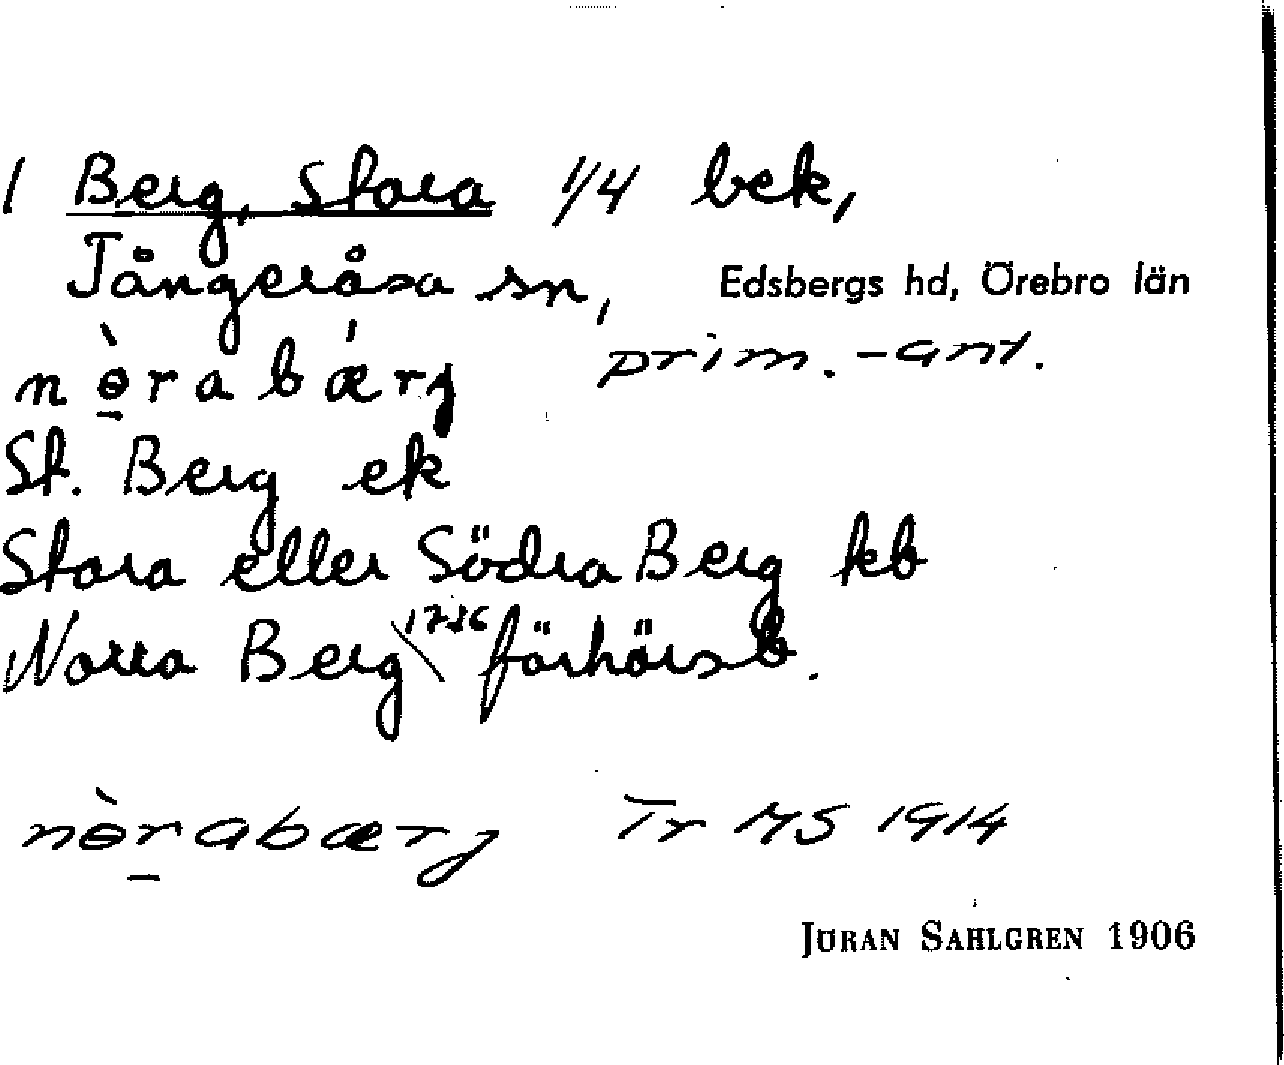 1 Berg, Stora 1/4 bek,
Tångeråsa sn, Edsbergs hd, Örebro län
nɵ̀rabǽrj prim.-ant.
St. Berg ek
Stora eller Södra Berg kb
Norra Berg 1786 förhörsb.
nɵ̀rabærj Tr MS 1914
JÖRAN SAHLGREN 1906